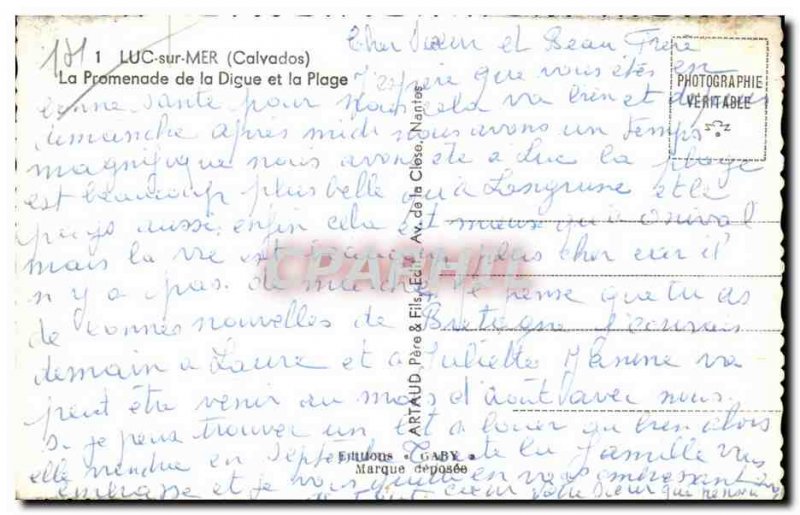 181
1 LUC-sur-MER (Calvados)
La Promenade de la Digue et la Plage
PHOTOGRAPHIE
VÉRITABLE
Cher Sœur et Beau Frère
J'espère que vous êtes en
bonne santé pour nous cela va bien et depuis
dimanche après midi nous avons un temps
magnifique nous avons été à Luc la plage
est beaucoup plus belle qu'à Langrune et le
pays aussi, enfin cela est mieux qu'à
mais la vie est plus cher car il
n'y a pas de Je pense que tu as
de bonnes nouvelles de Bretagne J'écrirais
demain à Laure et à Juliette va
peut être venir au mois d'août avec nous
si je peux trouver un lit à louer ou bien alors
elle viendra en Septembre Toute la famille vous
embrasse et je vous quitte en vous embrassant
ARTAUD Père & Fils, Édit., Av. de la Close, Nantes
Editions « GABY »
Marque déposée
CPAPHIL